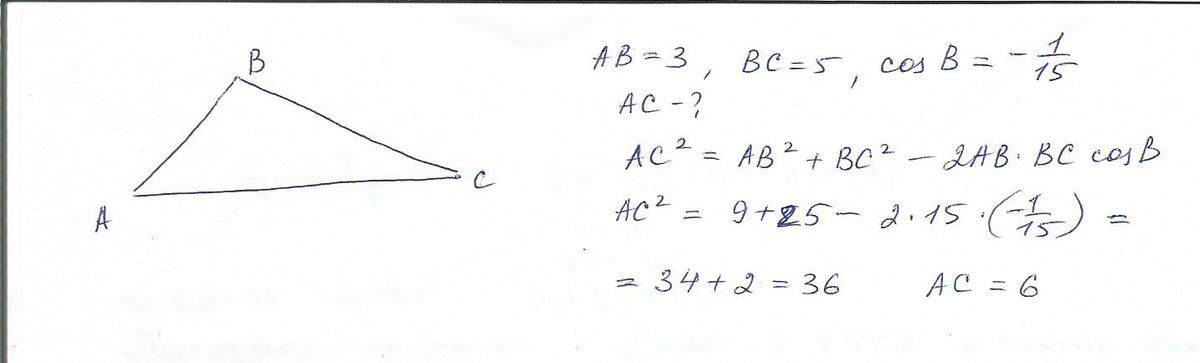 B
A
C
AB = 3, BC = 5, cos B = -1/15
AC - ?
AC² = AB² + BC² - 2AB · BC cos B
AC² = 9 + 25 - 2 · 15 · (-1/15) =
= 34 + 2 = 36 AC = 6